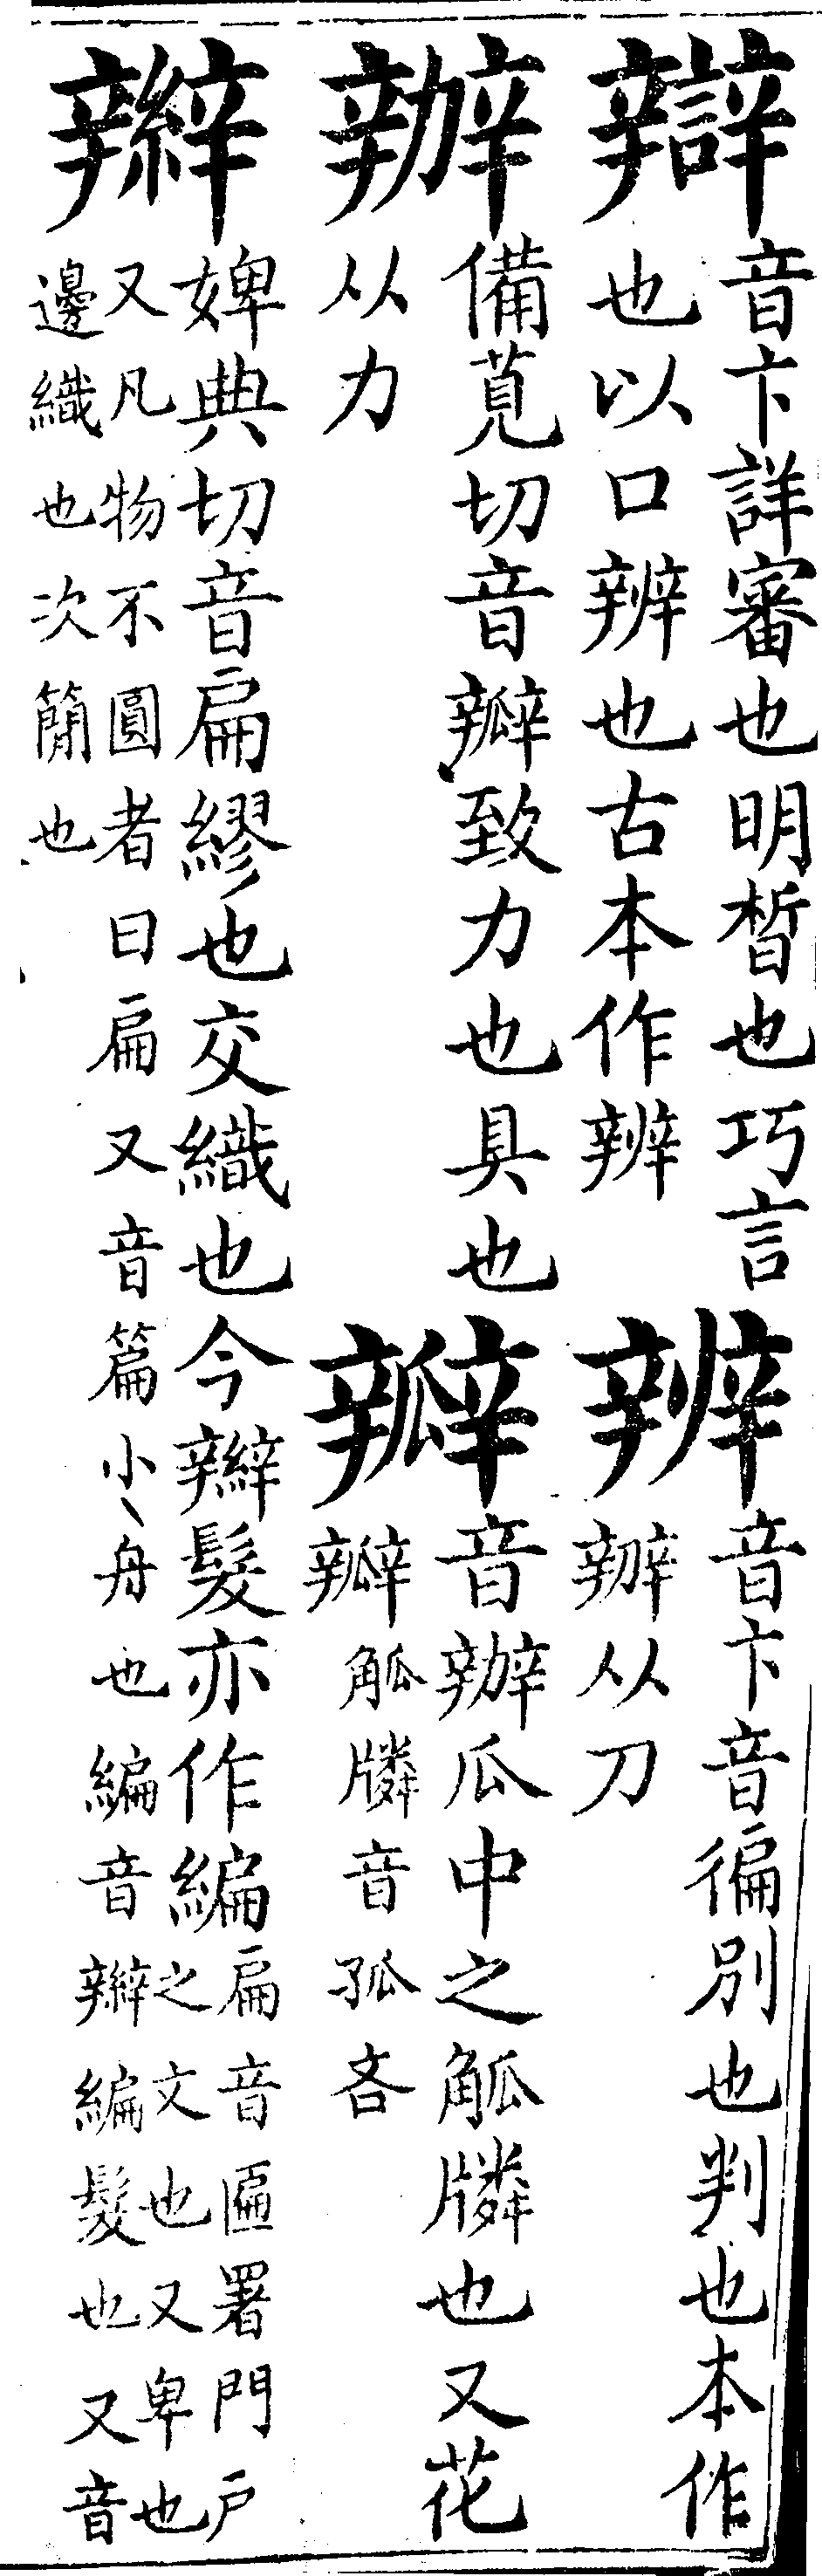 辯
音卞詳審也明晳也巧言
也以口辨也古本作辨
辨
音卞音徧別也判也本作
辧从刀
辦
備莧切音瓣致力也具也
从力
瓣
音辦瓜中之觚也又花
瓣觚音孤吝
辮
婢典切音扁繆也交織也今辮髮亦作編
扁音匾署門戶
之文也又卑也
又凡物不圓者曰扁又音篇小舟也編音辮編髮也又音
邊織也次簡也